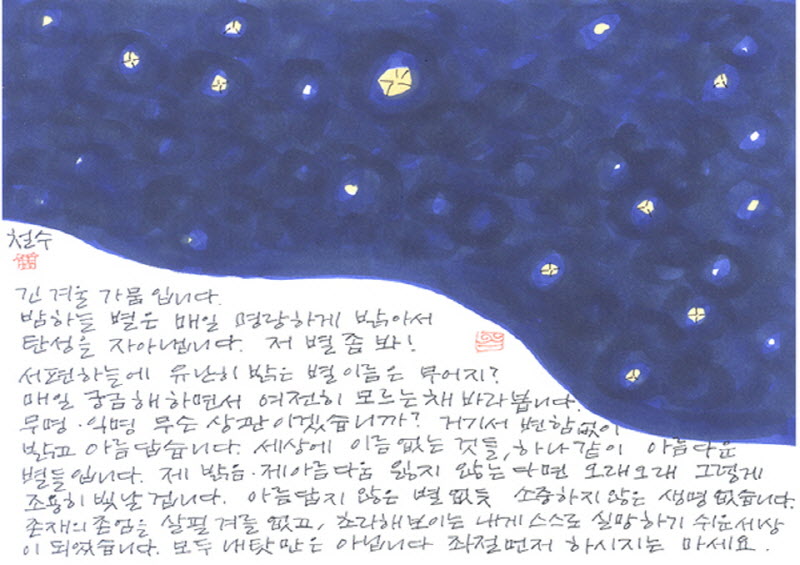 철수
긴 겨울 가뭄입니다.
밤하늘 별은 매일 명랑하게 밝아서
탄성을 자아냅니다. 저 별 좀 봐!
서편하늘에 유난히 밝은 별이름은 무어지?
매일 궁금해하면서 여전히 모르는채 바라봅니다.
무명·익명 무슨 상관이겠습니까? 거기서 변함없이
밝고 아름답습니다. 세상에 이름없는 것들, 하나같이 아름다운
별들입니다. 제 밝음·제아름다움 잃지 않는다면 오래오래 그렇게
조용히 빛날겁니다. 아름답지 않은 별 없듯 소중하지않은 생명 없습니다.
존재의존엄을 살필 겨를 없고, 초라해보이는 내게 스스로 실망하기 쉬운세상
이 되었습니다. 모두 내탓만은 아닙니다 좌절먼저 하시지는 마세요.